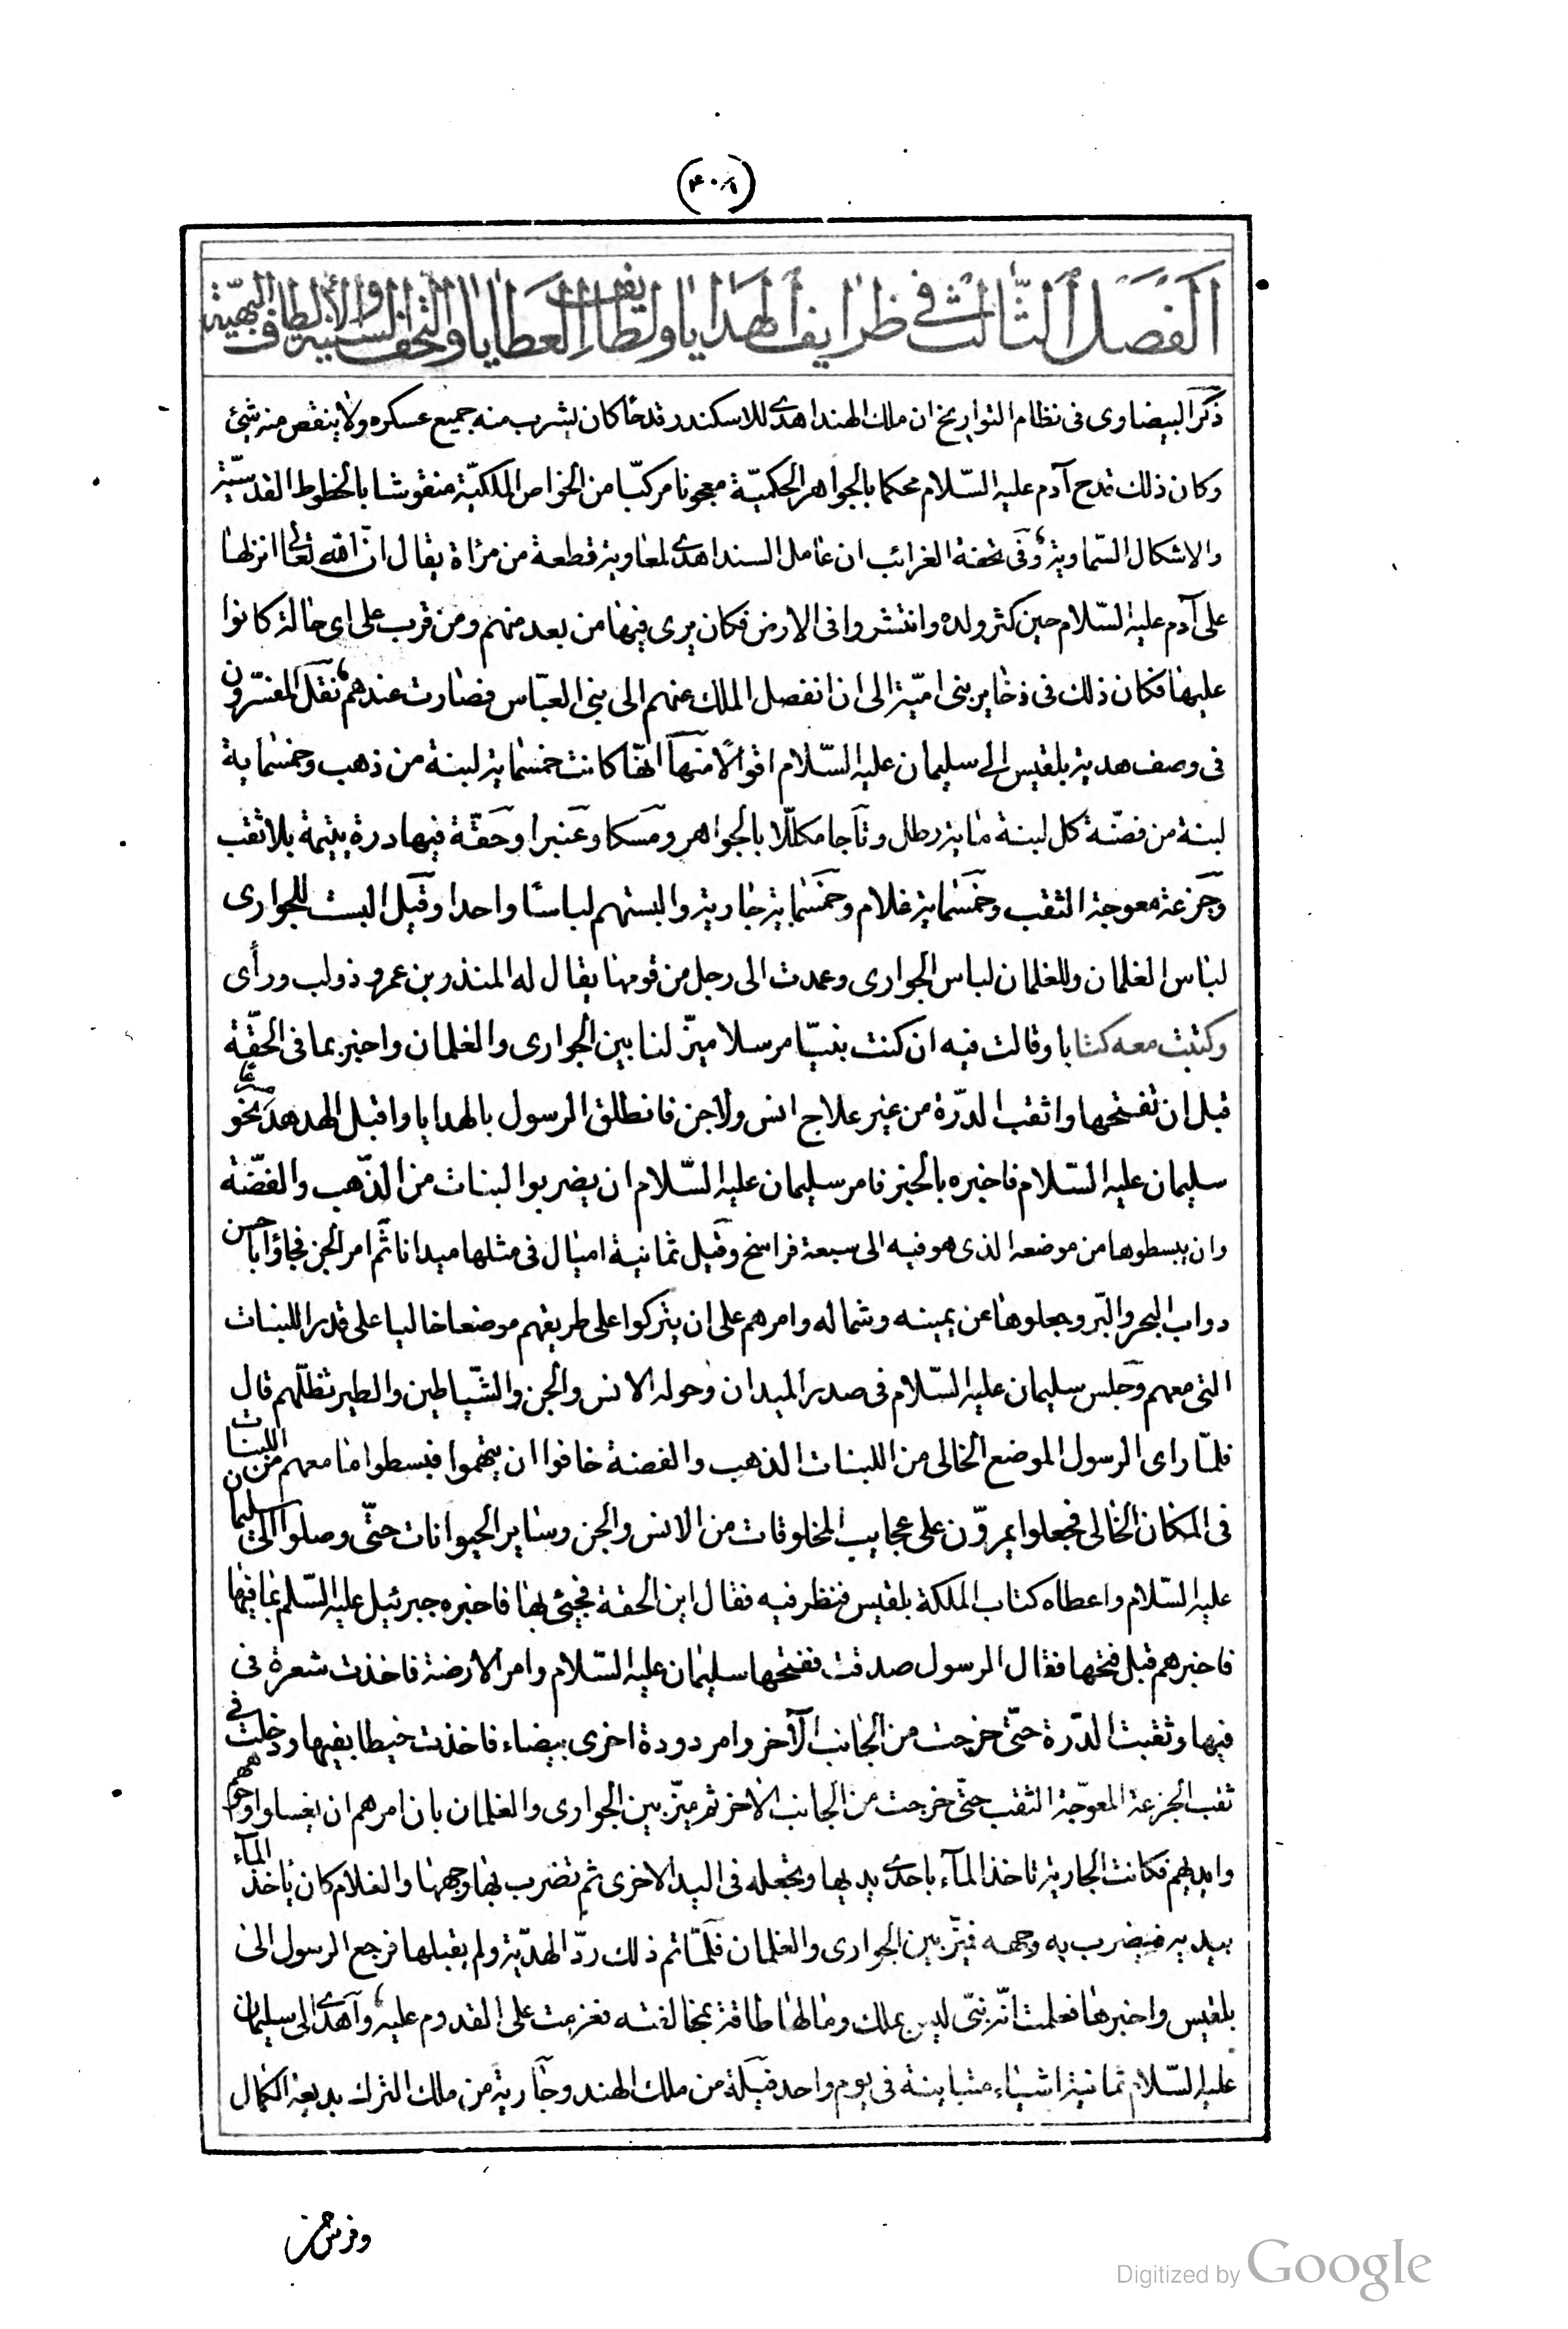 (۴۰۸)
الفصل الثالث في ظرايف الهدايا ولطايف العطايا والتحف السنية والألطاف البهية
ذكر البيضاوى فى نظام التواريخ ان ملك الهند اهدى للاسكندر قدحا كان يشرب منه جميع عسكره ولا ينقص منه شئ
وكان ذلك قدح آدم عليه السّلام محكما بالجواهر الحكميّة معجونا مركبّا من الخواص الملكيّة منقوشا بالخطوط القدسيّة
والاشكال السّماوية وفى تحفة الغرائب ان عامل السند اهدى لمعاوية قطعة من مرآة يقال انّ الله تعالى انزلها
على آدم عليه السّلام حين كثر ولده وانتشروا فى الارض فكان يرى فيها من بعد منهم ومن قرب على اى حالة كانوا
عليها فكان ذلك فى ذخاير بنى اميّة الى ان انفصل الملك عنهم الى بنى العبّاس فصارت عندهم نقل المفسّرون
فى وصف هدية بلقيس الى سليمان عليه السّلام اقوالًا منها انّها كانت خمسماية لبنة من ذهب وخمسماية
لبنة من فضّة كل لبنة ماية رطل وتاجا مكلّلا بالجواهر ومسكا وعنبرا وحقّة فيها درة يتيمة بلا ثقب
وجزعة معوجة الثقب وخمسماية غلام وخمسماية جارية والبستهم لباسا واحدا وقيل البست للجوارى
لباس الغلمان وللغلمان لباس الجوارى وعمدت الى رجل من قومها يقال له المنذر بن عمرو ذو لب ورأى
وكتبت معه كتابا وقالت فيه ان كنت نبيّا مرسلا ميّز لنا بين الجوارى والغلمان واخبر بما فى الحقّة
قبل ان تفتحها واثقب الدّرة من غير علاج انس ولا جن فانطلق الرسول بالهدايا واقبل الهدهد نحو
سليمان عليه السّلام فاخبره بالخبر فامر سليمان عليه السّلام ان يضربوا لبنات من الذّهب والفضّة
وان يبسطوها من موضعه الذى هو فيه الى سبعة فراسخ وقيل ثمانية اميال فى مثلها ميدانا ثم امر الجن فجاؤا باحسن
دواب البحر والبّر وجعلوها عن يمينه وشماله وامرهم على ان يتركوا على طريقهم موضعا خاليا على قدر اللبنات
التى معهم وجلس سليمان عليه السّلام فى صدر الميدان وحوله الانس والجن والشّياطين والطير تظلّهم قال
فلمّا راى الرسول الموضع الخالى من اللبنات الذهب والفضة خافوا ان يتهموا فبسطوا ما معهم من اللبنات
فى المكان الخالى فجعلوا يمرّون على عجايب المخلوقات من الانس والجن وساير الحيوانات حتّى وصلوا الى سليمان
عليه السّلام واعطاه كتاب الملكة بلقيس فنظر فيه فقال اين الحقة فجيئ بها فاخبره جبرئيل عليه السّلم بما فيها
فاخبرهم قبل فتحها فقال الرسول صدقت ففتحها سليمان عليه السّلام وامر الارضة فاخذت شعرة فى
فيها وثقبت الدّرة حتّى خرجت من الجانب الآخر وامر دودة اخرى بيضاء فاخذت خيطا بفيها ودخلت فى
ثقب الجزعة المعوّجة الثقب حتّى خرجت من الجانب الاخر ثم ميّز بين الجوارى والغلمان بان امرهم ان يغسلوا وجوههم
وايديهم فكانت الجارية تاخذ المآء باحدى يديها وتجعله فى اليد الاخرى ثم تضرب بها وجهها والغلام كان ياخذ المآء
بيديه فيضرب به وجهه فميّز بين الجوارى والغلمان فلمّا تم ذلك ردّ الهدّية ولم يقبلها فرجع الرسول الى
بلقيس واخبرها فعلمت انّه نبىّ ليس بملك وما لها طاقة بمخالفته فعزمت على القدوم عليه واهدى الى سليمان
عليه السّلام ثمانية اشياء متباينة فى يوم واحد فيلة من ملك الهند وجارية من ملك الترك بديعة الكمال
وفرش من
Digitized by Google